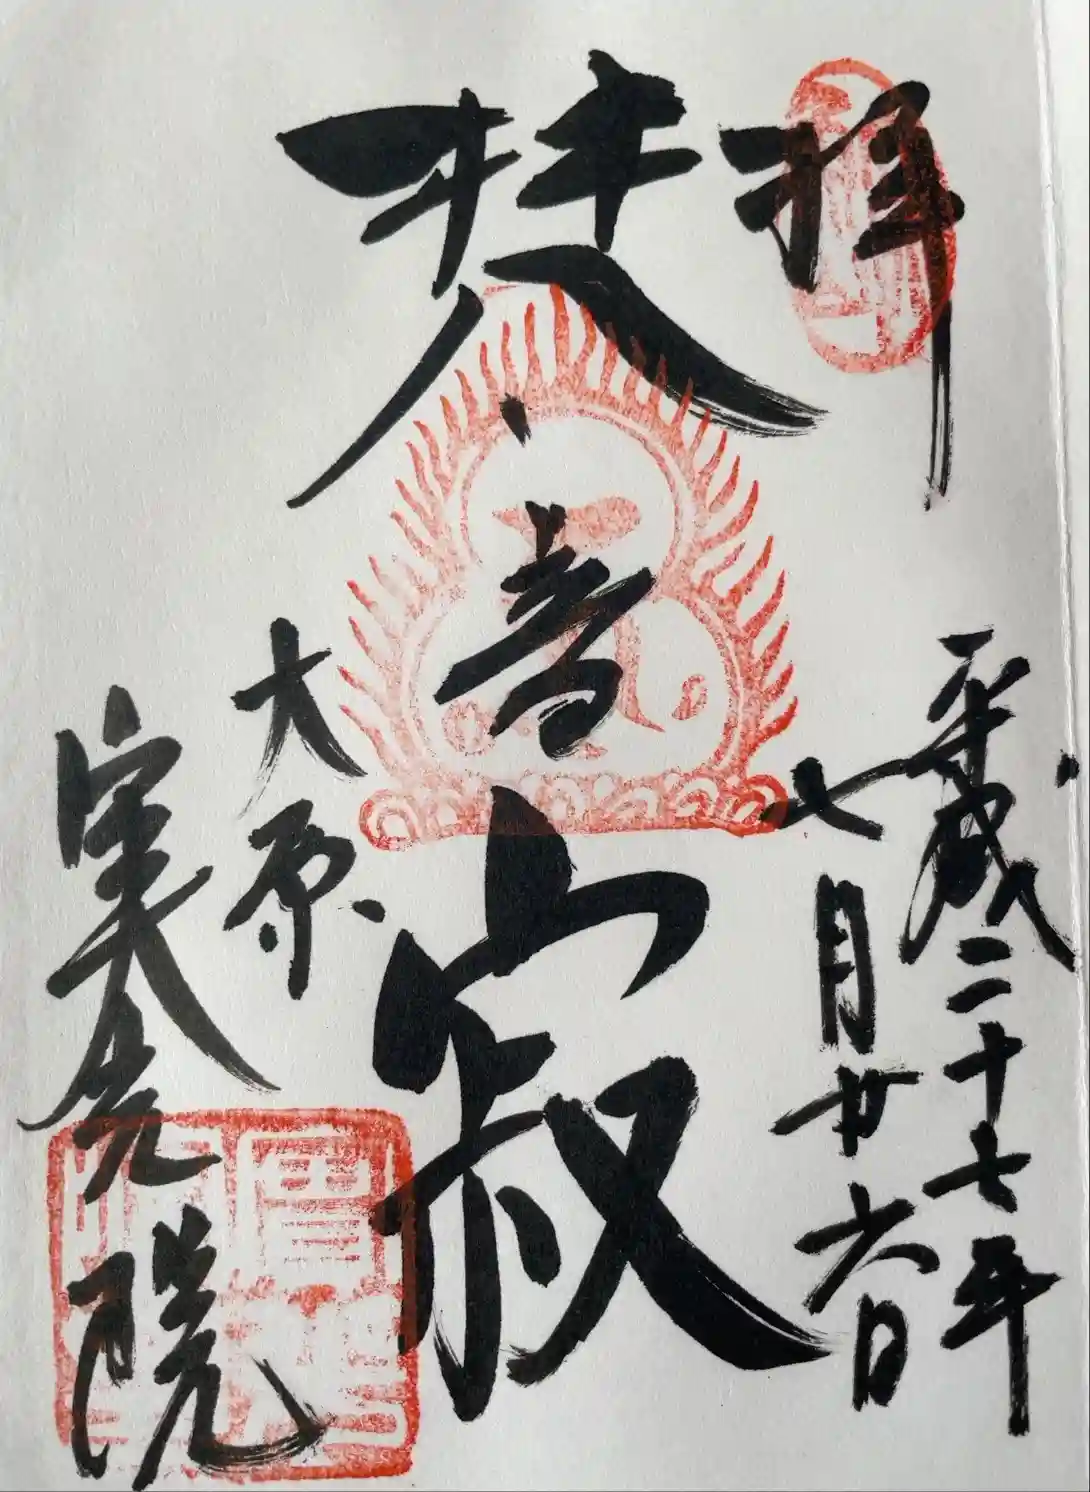 拝
平成二十七年
七月廿六日
梵音寂
大原
実光院